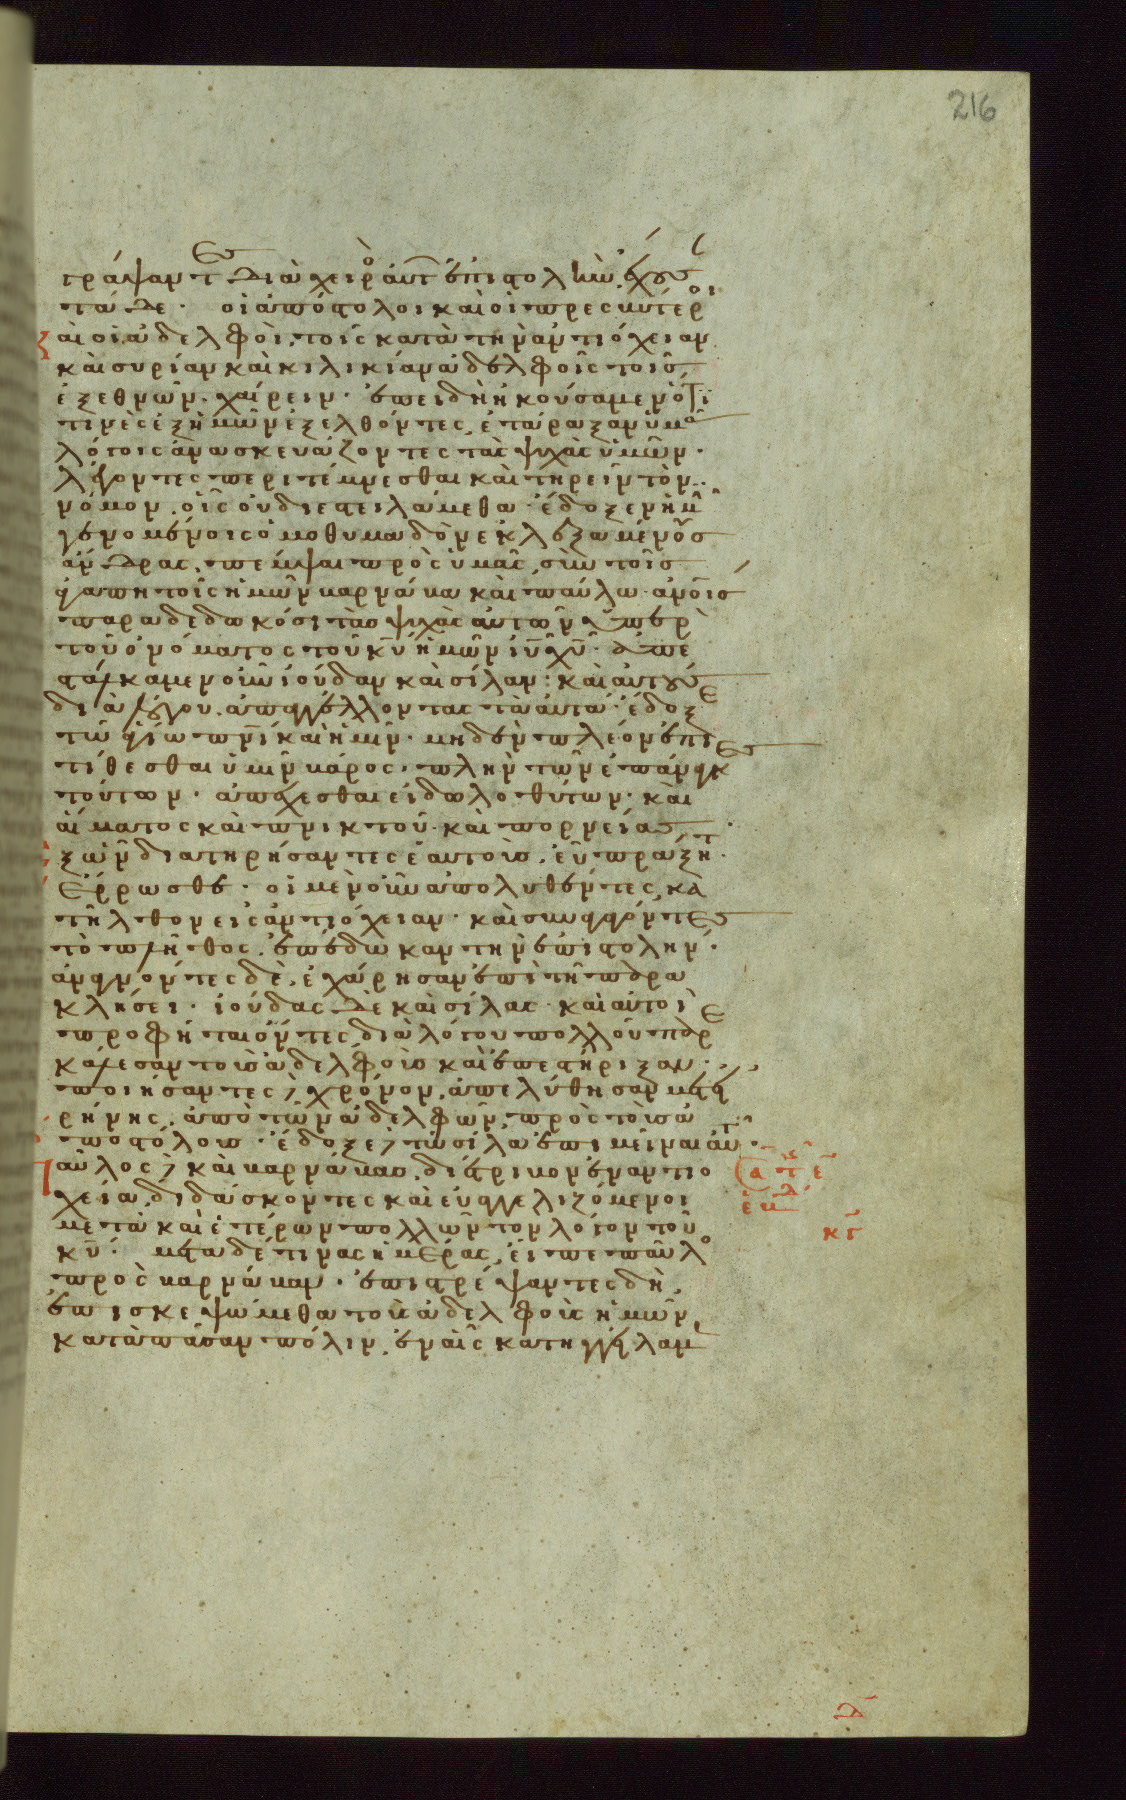 216
γράψαντες διὰ χειρὸς αὐτῶν ἐπιστολὴν ἔχουσαν
τάδε · οἱ ἀπόστολοι καὶ οἱ πρεσβύτεροι
καὶ οἱ ἀδελφοὶ, τοῖς κατὰ τὴν ἀντιόχειαν
καὶ συρίαν καὶ κιλικίαν ἀδελφοῖς τοῖς
ἐξ ἐθνῶν · χαίρειν · ἐπειδὴ ἠκούσαμεν ὅτι
τινὲς ἐξ ἡμῶν ἐξελθόντες, ἐτάραξαν ὑμᾶς
λόγοις ἀνασκευάζοντες τὰς ψυχὰς ὑμῶν ·
λέγοντες περιτέμνεσθαι καὶ τηρεῖν τὸν
νόμον, οἷς οὐ διεστειλάμεθα · ἔδοξεν ἡμῖν
γενομένοις ὁμοθυμαδὸν ἐκλεξαμένους
ἄνδρας, πέμψαι πρὸς ὑμᾶς, σὺν τοῖς
ἀγαπητοῖς ἡμῶν βαρνάβα καὶ παύλω · ἀνοις
παραδεδωκόσι τὰς ψυχὰς αὐτῶν ὑπὲρ
τοῦ ὀνόματος τοῦ κυ ἡμῶν ιυ χυ · ἀπε
στάλκαμεν οὖν ἰούδαν καὶ σίλαν : καὶ αὐτοὺς
διὰ λόγου ἀπαγγέλλοντας τὰ αὐτά · ἔδοξε
τῶ ἁγίω πνι καὶ ἡμῖν · μηδὲν πλέον ἐπι
τίθεσθαι ὑμῖν βάρος · πλὴν τῶν ἐπάναγκες
τούτων · ἀπέχεσθαι εἰδωλοθύτων · καὶ
αἵματος καὶ πνικτοῦ · καὶ πορνείας
ἐξ ὧν διατηροῦντες ἑαυτοὺς, εὖ πράξητε ·
ἔρρωσθε · οἱ μὲν οὖν ἀπολυθέντες, κα
τῆλθον εἰς ἀντιόχειαν · καὶ συναγαγόντες
τὸ πλῆθος, ἐπέδωκαν τὴν ἐπιστολήν ·
ἀναγνόντες δὲ, ἐχάρησαν ἐπὶ τῆ παρα
κλήσει · ἰούδας δὲ καὶ σίλας · καὶ αὐτοὶ
προφῆται ὄντες διὰ λόγου πολλοῦ παρε
κάλεσαν τοὺς ἀδελφοὺς καὶ ἐπεστήριξαν ·
ποιήσαντες δὲ χρόνον, ἀπελύθησαν μετ' εἰ
ρήνης, ἀπὸ τῶν ἀδελφῶν πρὸς τοὺς ἀ
ποστόλους · ἔδοξε δὲ τῶ σίλα ἐπιμεῖναι αὐτοῦ ·
παῦλος δὲ καὶ βαρνάβας, διέτριβον ἐν ἀντιο
χεία, διδάσκοντες καὶ εὐαγγελιζόμενοι
μετὰ καὶ ἑτέρων πολλῶν τὸν λόγον τοῦ
κυ · μετὰ δέ τινας ἡμέρας, εἶπε παῦλος
πρὸς βαρνάβαν · ἐπιστρέψαντες δὴ,
ἐπισκεψώμεθα τοὺς ἀδελφοὺς ἡμῶν,
κατὰ πᾶσαν πόλιν, ἐν αἷς κατηγγείλαμεν